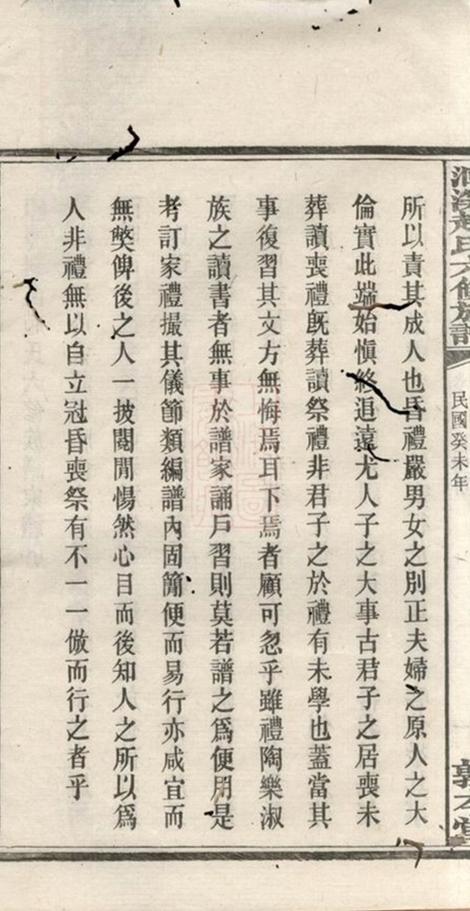 氏六修族譜
民國癸未年
所以責其成人也昏禮嚴男女之別正夫婦之原人之大
倫實此端始愼終追遠尤人子之大事古君子之居喪未
葬讀喪禮旣葬讀祭禮非君子之於禮有未學也蓋當其
事復習其文方無悔焉耳下焉者顧可忽乎雖禮陶樂淑
族之讀書者無事於譜家誦戶習則莫若譜之爲便用是
考訂家禮撮其儀節類編譜內固簡便而易行亦咸宜而
無獘俾後之人一披閱閒惕然心目而後知人之所以爲
人非禮無以自立冠昏喪祭有不一一倣而行之者乎